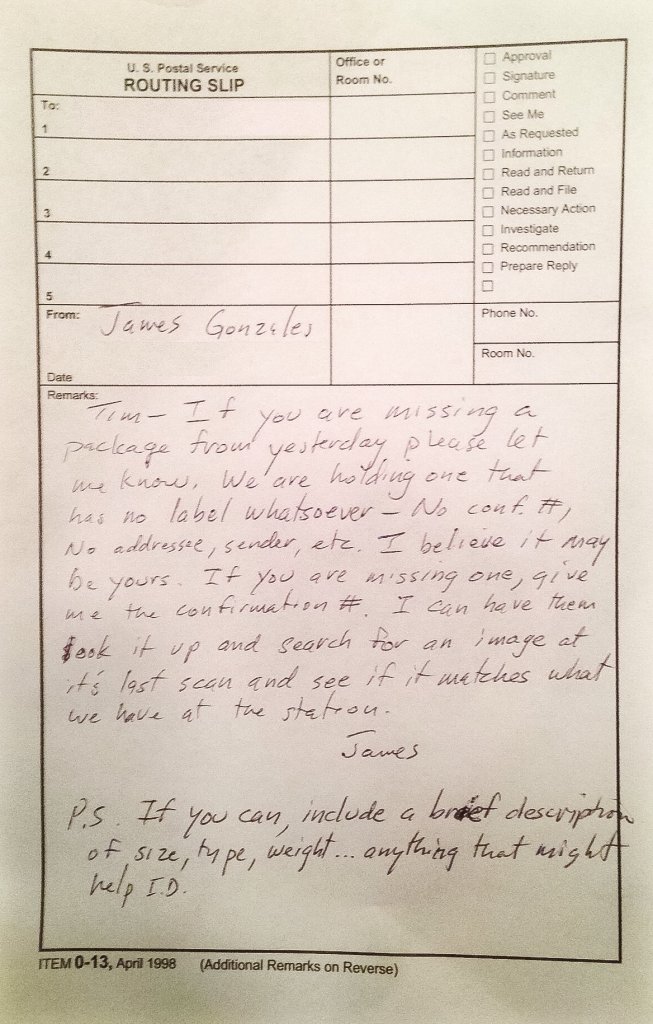 U. S. Postal Service
ROUTING SLIP
Office or
Room No.
Approval
Signature
Comment
See Me
As Requested
Information
Read and Return
Read and File
Necessary Action
Investigate
Recommendation
Prepare Reply
To:
1
2
3
4
5
From: James Gonzales
Phone No.
Room No.
Date
Remarks:
Tim – If you are missing a
package from yesterday please let
me know. We are holding one that
has no label whatsoever – No conf. #,
No addressee, sender, etc. I believe it may
be yours. If you are missing one, give
me the confirmation #. I can have them
look it up and search for an image at
it's last scan and see if it matches what
we have at the station.
James
P.S. If you can, include a brief description
of size, type, weight... anything that might
help I.D.
ITEM 0-13, April 1998 (Additional Remarks on Reverse)